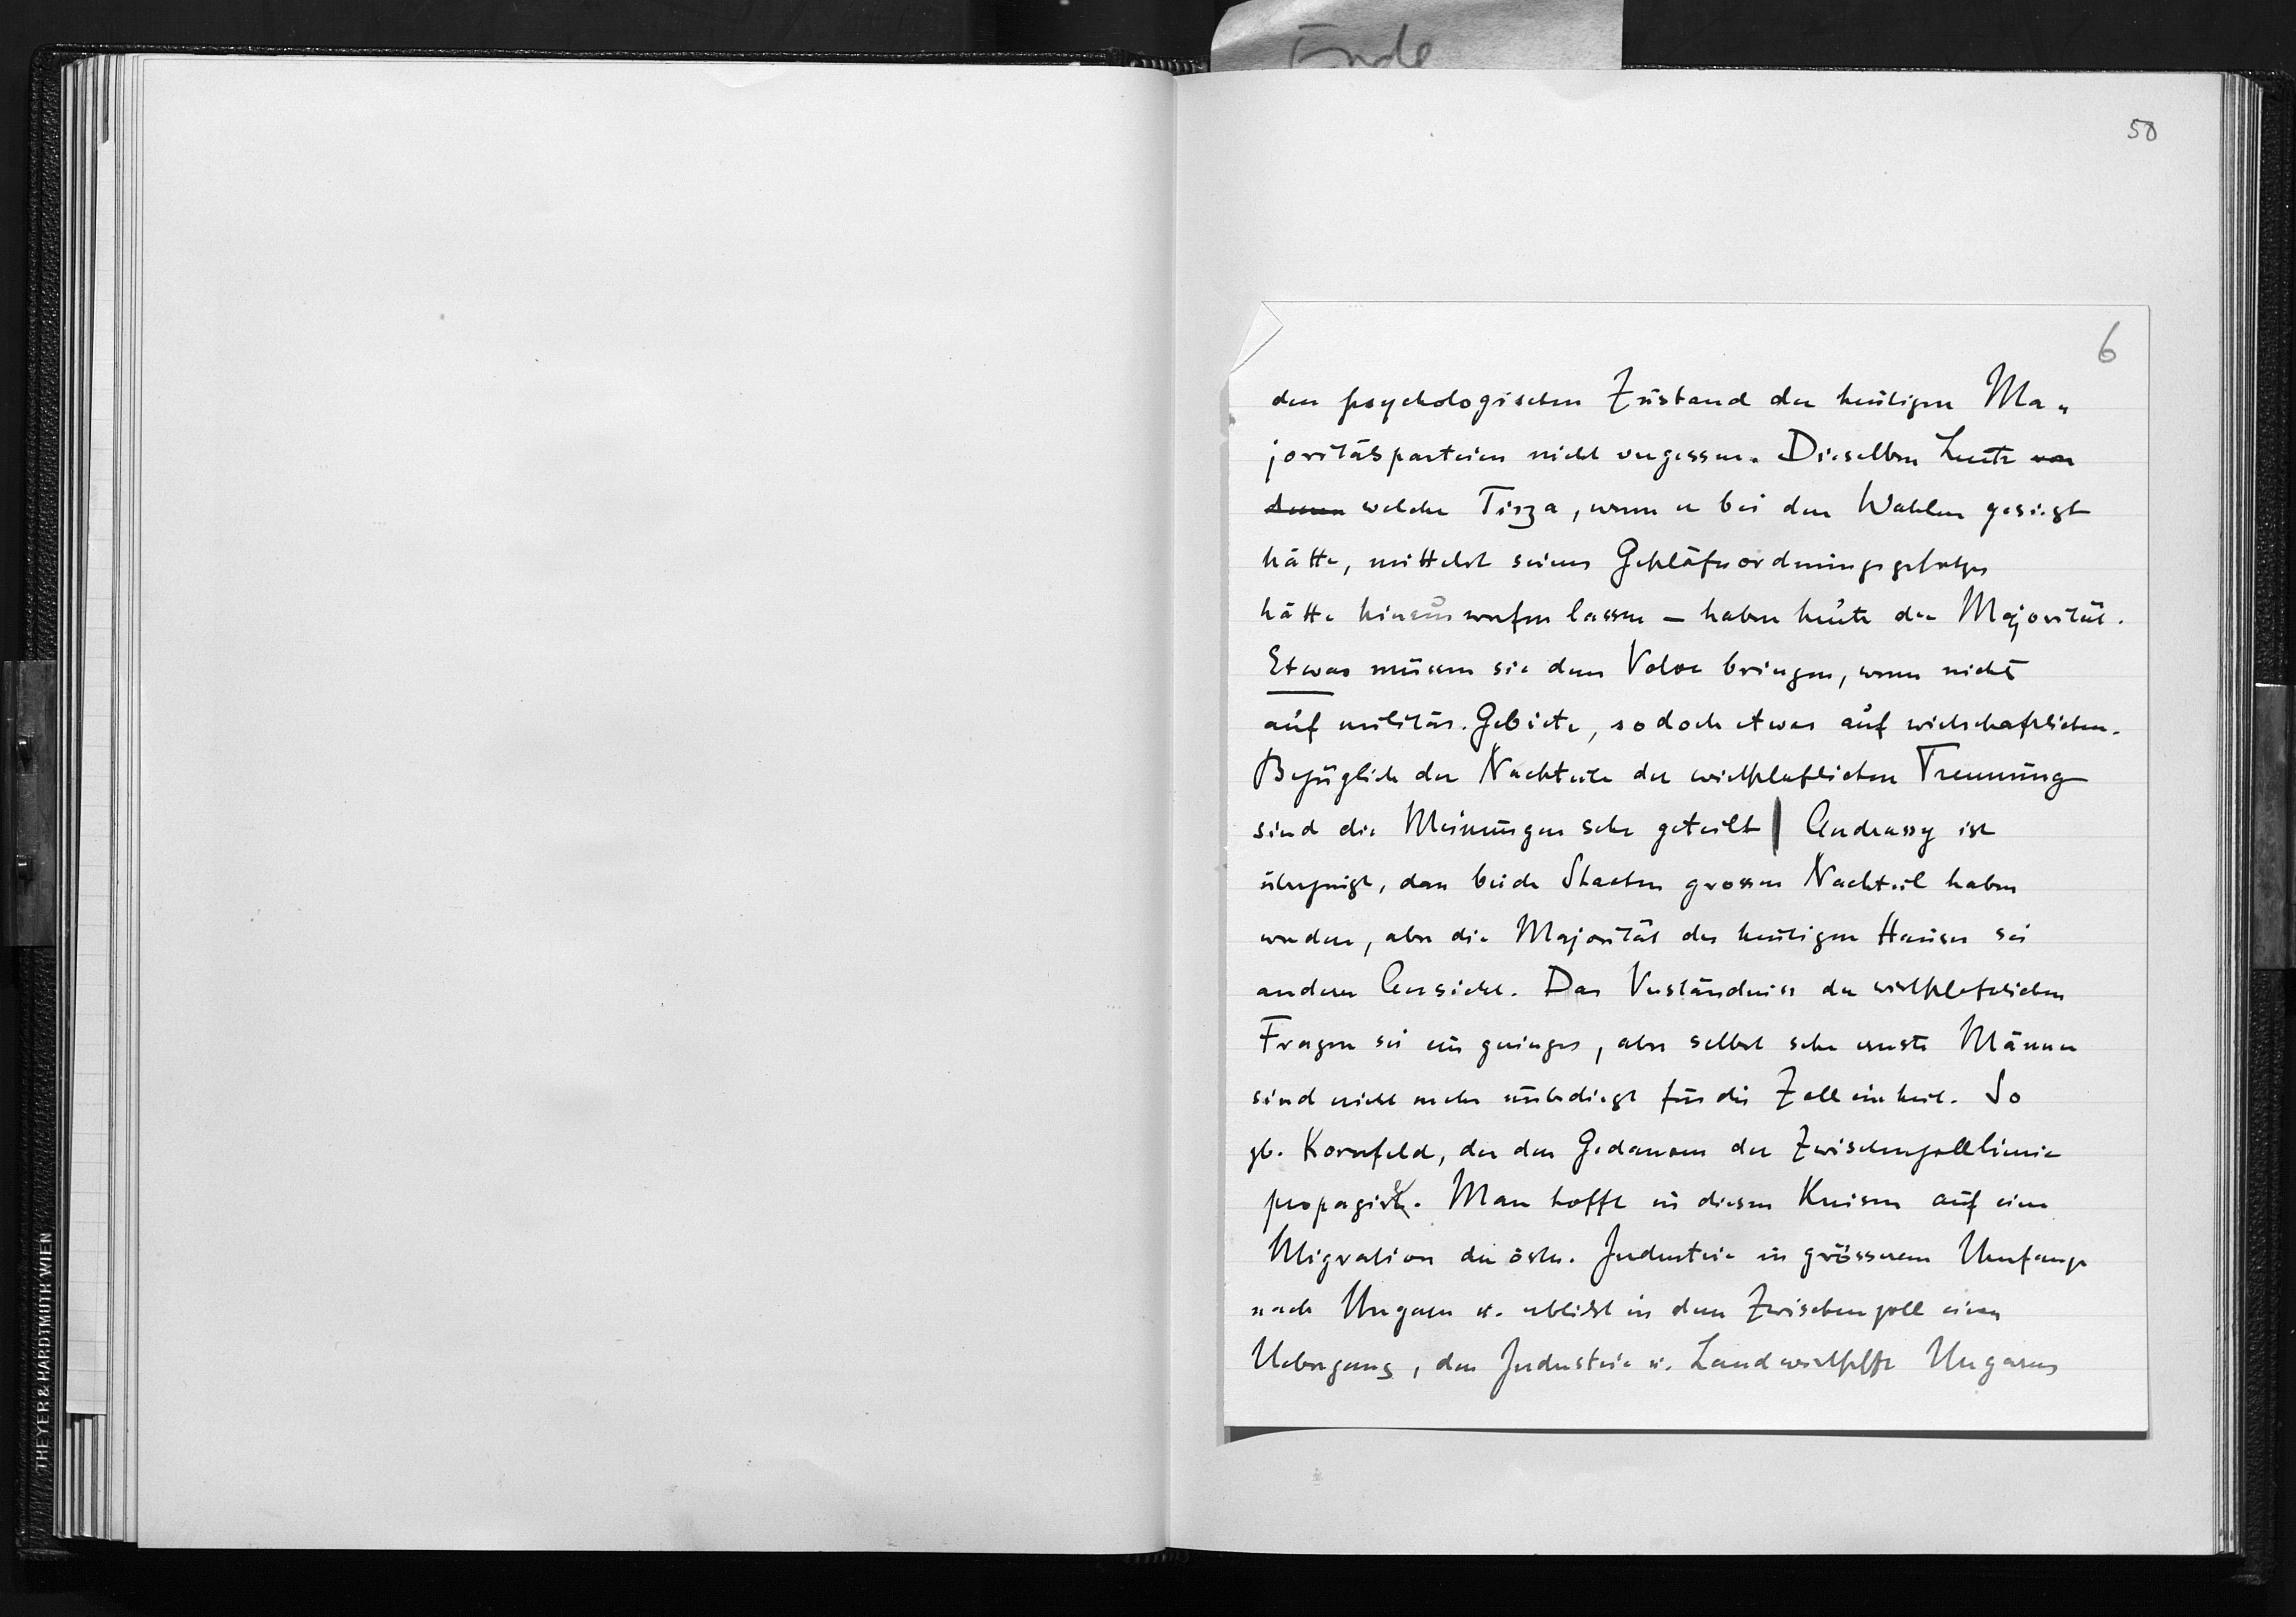 Ende
50
6
den psychologischen Zustand der heutigen Ma-
joritätsparteien nicht vergessen. Dieselben Leute von
denen welche Tisza, wenn er bei den Wahlen gesiegt
hätte, mittelst seines Geschäftsordnungsgesetzes
hätte hinauswerfen lassen – haben heute die Majorität.
Etwas müssen sie dem Volke bringen, wenn nicht
auf militär. Gebiete, so doch etwas auf wirtschaftlichem.
Bezüglich der Nachteile der wirtschaftlichen Trennung
sind die Meinungen sehr geteilt | Andrassy ist
überzeugt, dass beide Staaten grossen Nachteil haben
werden, aber die Majorität des heutigen Hauses sei
anderer Ansicht. Das Verständniss der wirtschaftlichen
Fragen sei ein geringes, aber selbst sehr ernste Männer
sind nicht mehr unbedingt für die Zolleinheit. So
zb. Kornfeld, der den Gedanken der Zwischenzolllinie
propagirt. Man hofft in diesen Kreisen auf eine
Migration der östr. Industrie in grösserem Umfange
nach Ungarn u. erblickt in dem Zwischenzoll einen
Uebergang, der Industrie u. Landwirtschft Ungarns
THEYER & HARDTMUTH WIEN